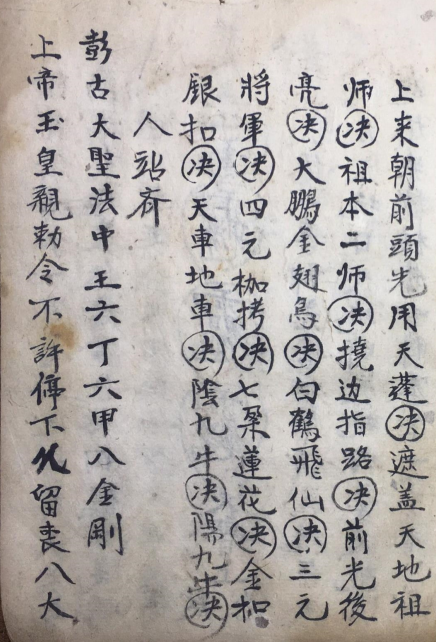 上来朝前頭光用天蓬决遮盖天地祖
师决祖本二师决撓边指路决前光後
亮决大鵬金翅鳥决白鶴飛仙决三元
將軍决四元枷拷决七朶蓮花决金扣
銀扣决天車地車决陰九牛决陽九牛决
人站齐
彭古大聖法中王六丁六甲八金剛
上帝玉皇親勅令不許停下留丧八大